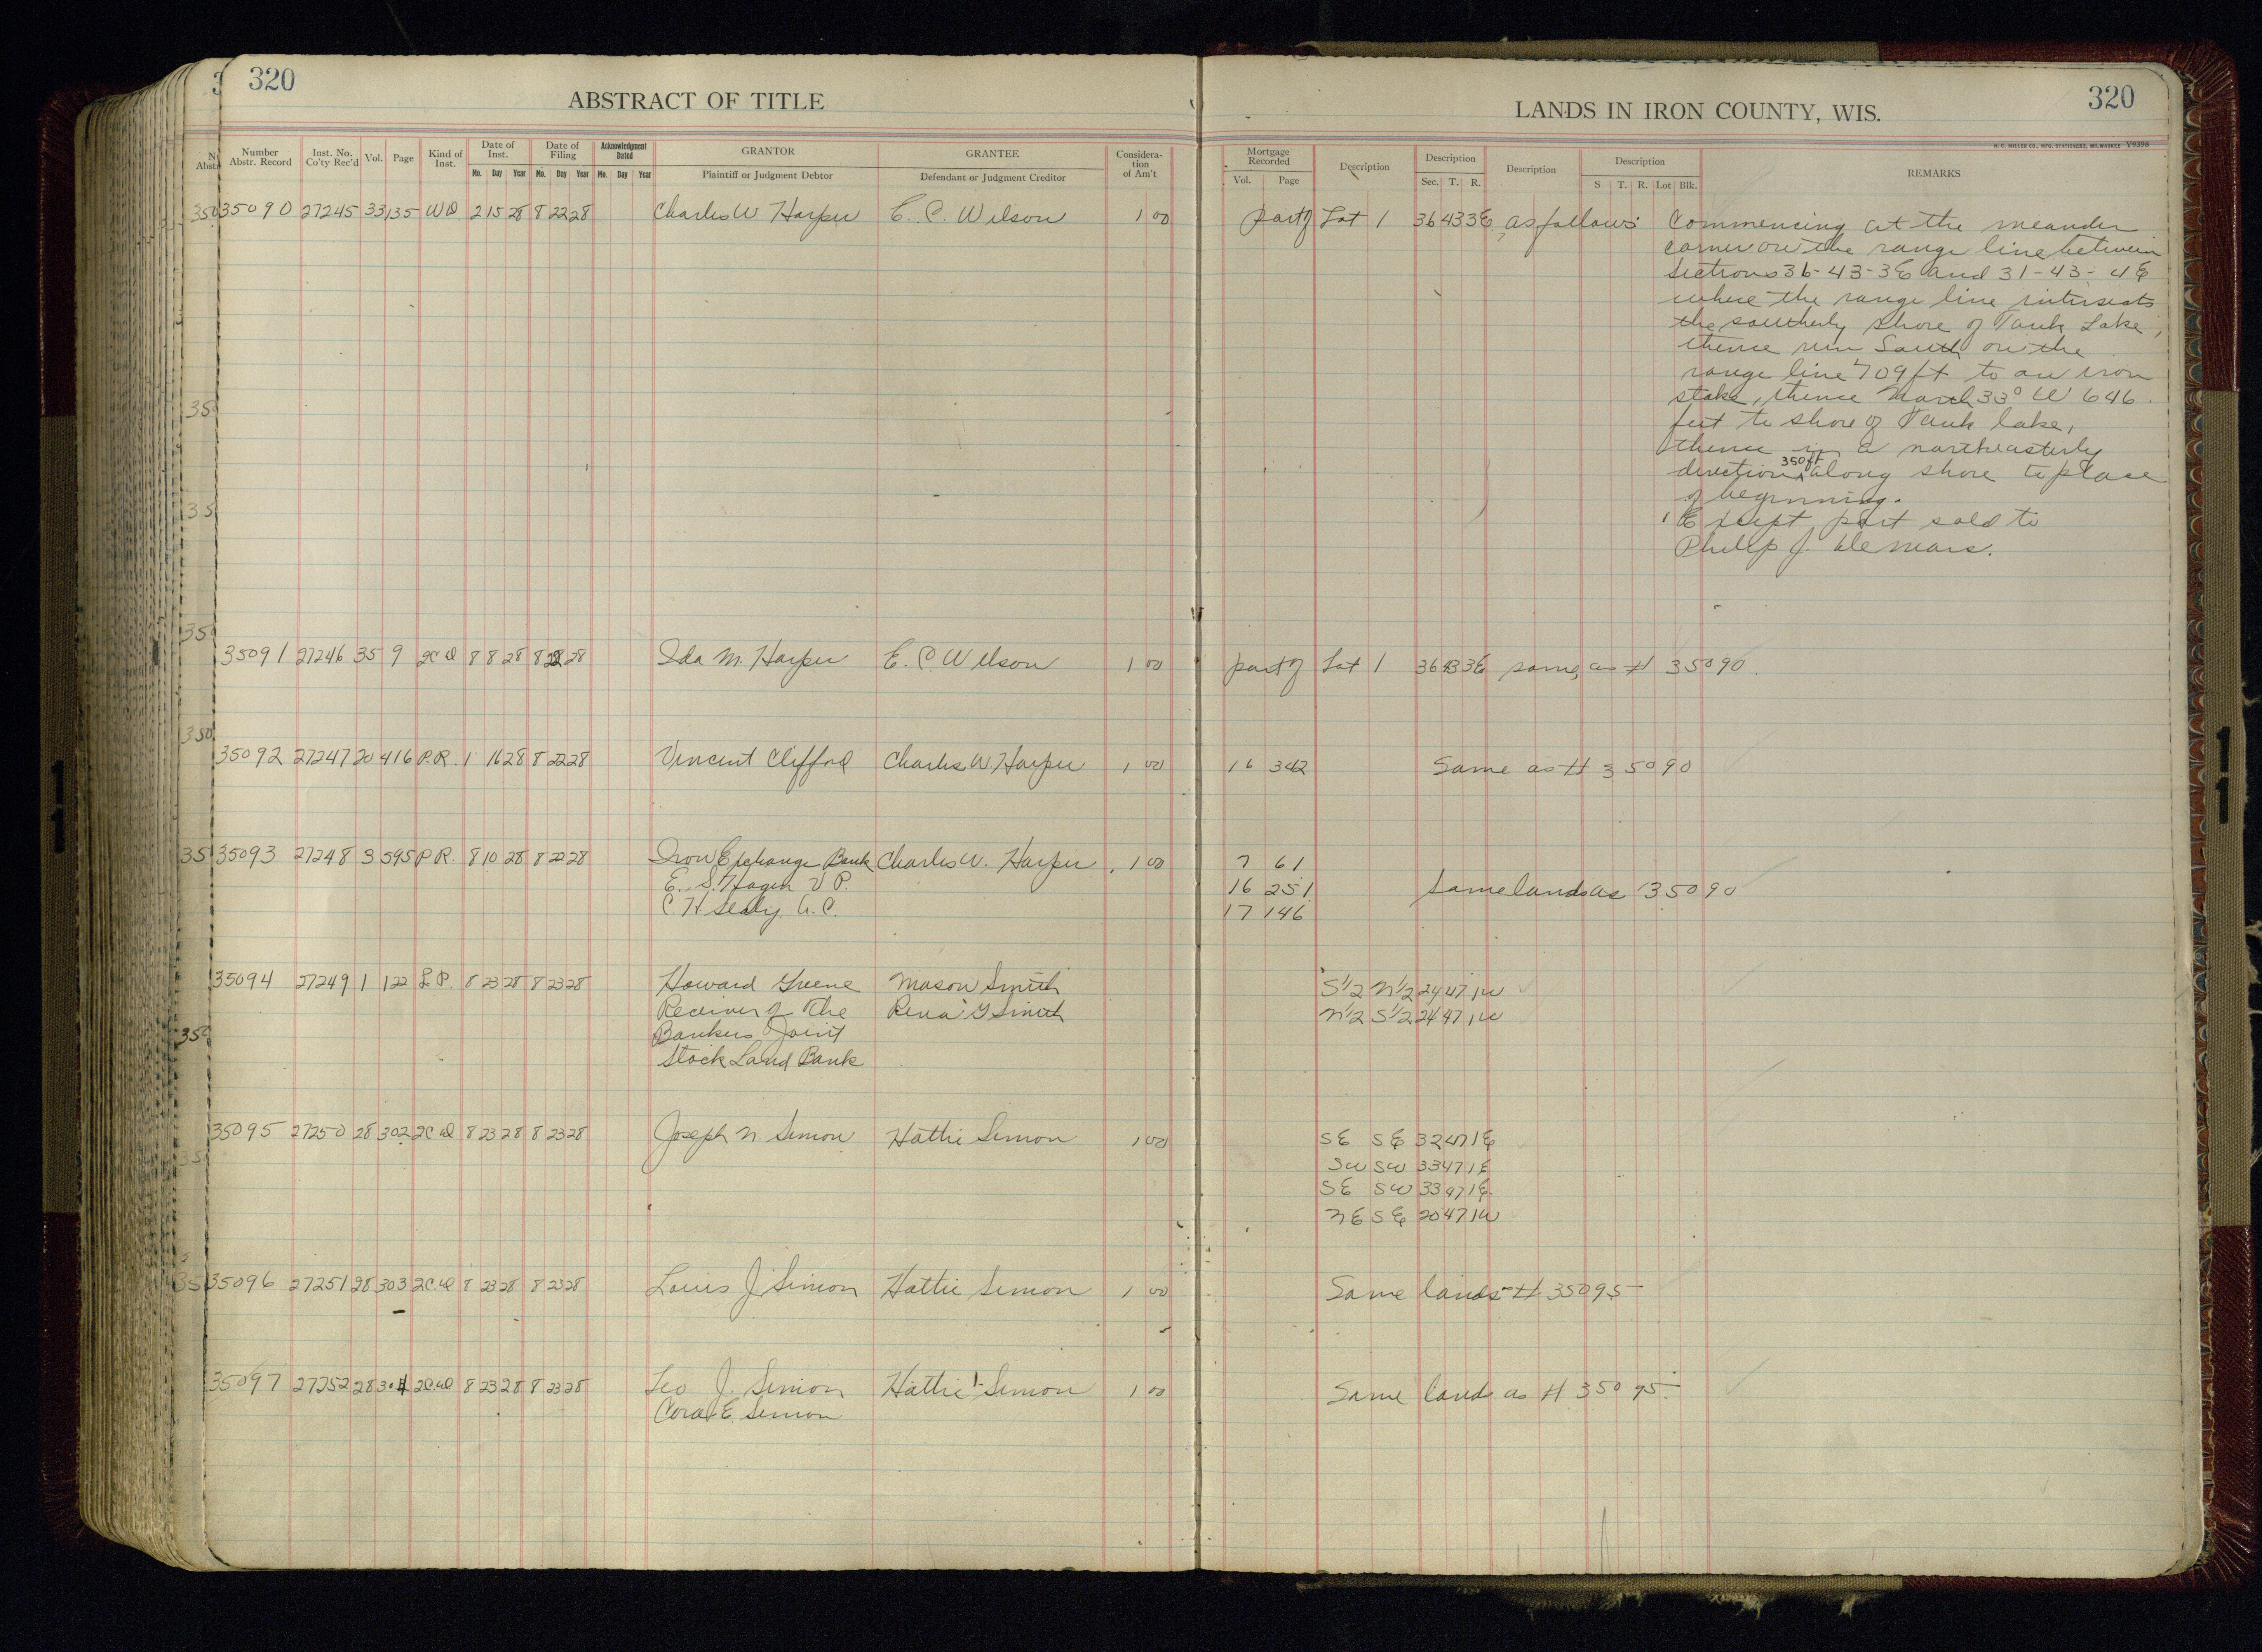 320
ABSTRACT OF TITLE
Number Abstr. Record
Inst. No. Co'ty Rec'd
Vol.
Page
Kind of Inst.
Date of Inst.
Mo. Day Year
Date of Filing
Mo. Day Year
Acknowledgment Dated
Mo. Day Year
GRANTOR
Plaintiff or Judgment Debtor
GRANTEE
Defendant or Judgment Creditor
Considera-
tion
of Am't
35090 27245 33 135 WD 2 15 28 8 22 28 Charles W Harper E. C. Wilson 1 00
35091 27246 35 9 2C D 8 8 28 8 22 28 Ida M. Harper E. C. Wilson 1 00
35092 27247 20 416 P.R. 1 16 28 8 22 28 Vincent Clifford Charles W Harper 1 00
35093 27248 3 595 P.R. 8 10 28 8 22 28 Iron Exchange Bank Charles W. Harper 1 00
E. S. Hagen V P.
C. H. Sealy A. C.
35094 27249 1 122 L P. 8 23 28 8 23 28 Howard Greene Mason Smith
Receiver of The Rena G Smith
Bankers Joint
Stock Land Bank
35095 27250 28 302 2C D 8 23 28 8 23 28 Joseph N. Simon Hattie Simon 1 00
35096 27251 28 303 2C. D 8 23 28 8 23 28 Louis J Simon Hattie Simon 1 00
35097 27252 28 304 2C. D 8 23 28 8 23 28 Leo J. Simon Hattie Simon 1 00
Cora E Simon
320
LANDS IN IRON COUNTY, WIS.
H. C. MILLER CO., MFG. STATIONERS, MILWAUKEE V9398
Mortgage Recorded
Vol. Page
Description
Description
Sec. T. R.
Description
Description
S T. R. Lot Blk.
REMARKS
part of Lot 1 36 43 3E as follows Commencing at the meander
corner on the range line between
Sections 36-43-3E and 31-43-4E
where the range line intersects
the southerly shore of Tank Lake,
thence run South on the
range line 709 ft to an iron
stake, thence North 33° W 646
feet to shore of Tank lake,
thence in a northeasterly
direction 350 ft along shore to place
of beginning.
Except part sold to
Philip J. Demars.
part of Lot 1 36 43 3E same as # 35090.
16 342 Same as # 35090
7 61
16 251 Same lands as 35090
17 146
S 1/2 N 1/2 24 47 1W
N 1/2 S 1/2 24 47 1W
SE SE 32 47 1E
SW SW 33 47 1E
SE SW 33 47 1E
NE SE 20 47 1W
Same lands # 35095
Same lands as # 35095